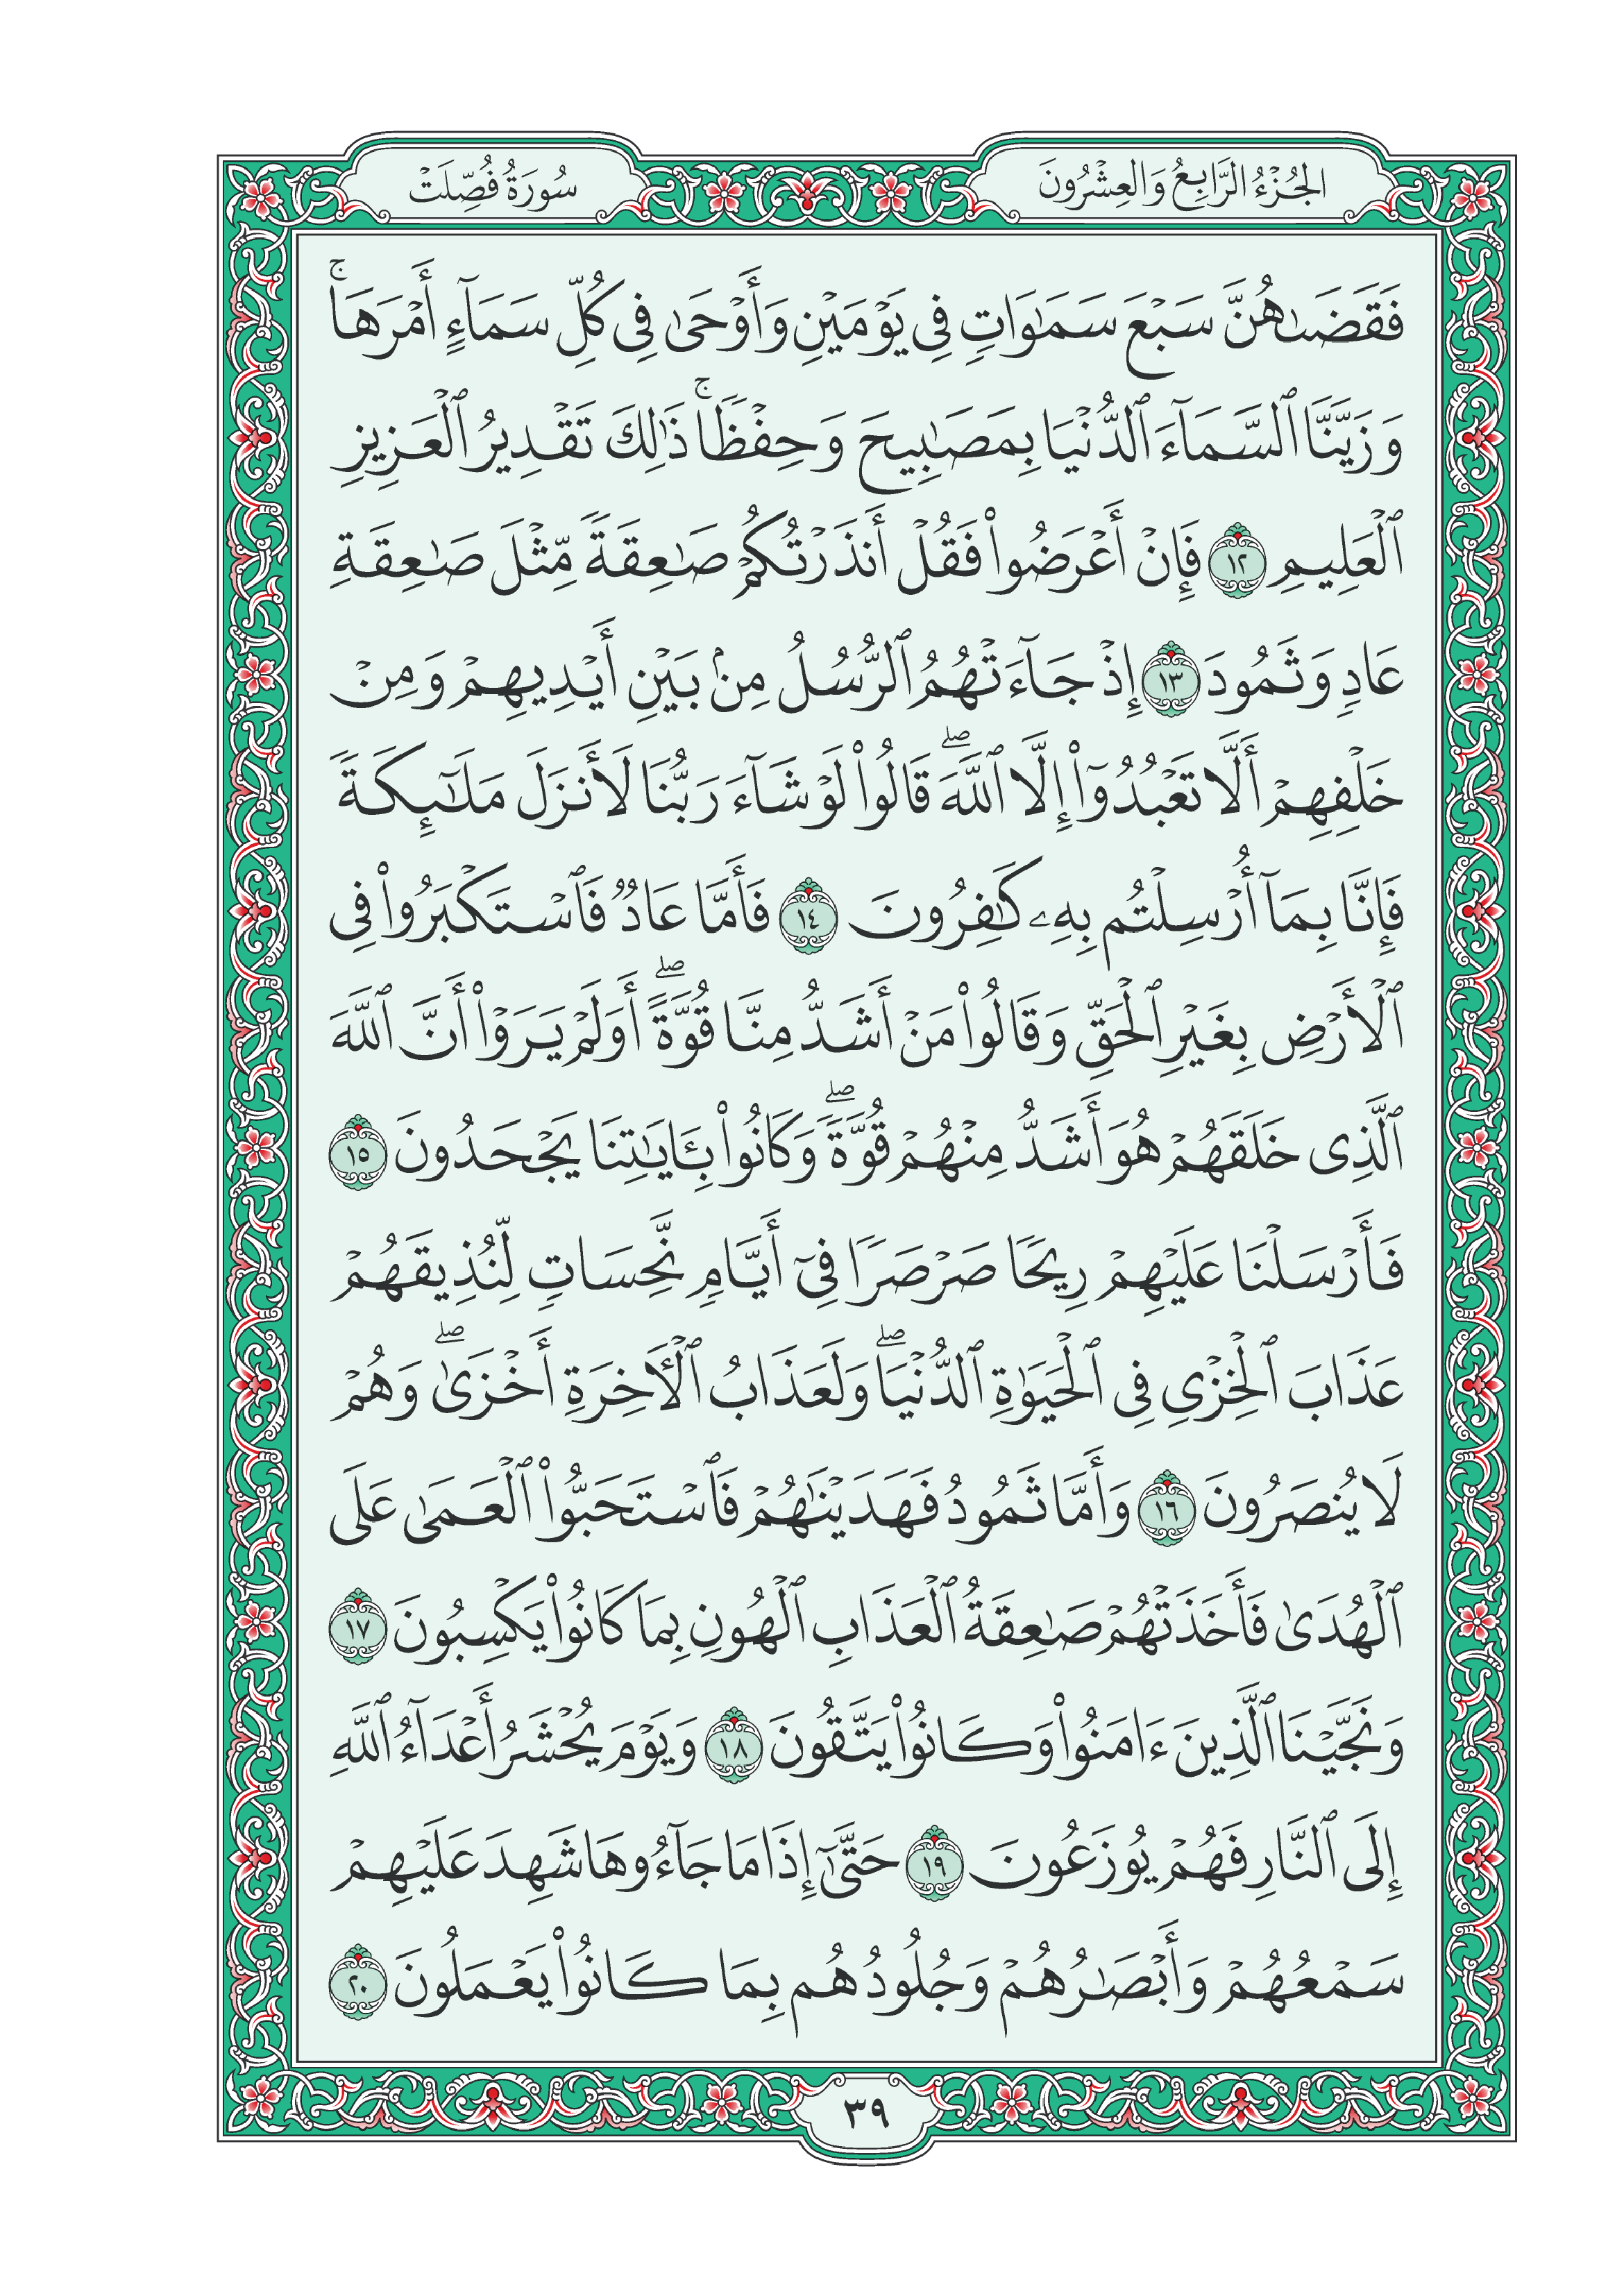 الجُزْءُ الرَّابِعُ وَالعِشْرُونَ
سُورَةُ فُصِّلَتْ
فَقَضَىٰهُنَّ سَبْعَ سَمَٰوَاتٍ فِى يَوْمَيْنِ وَأَوْحَىٰ فِى كُلِّ سَمَآءٍ أَمْرَهَا ۚ
وَزَيَّنَّا ٱلسَّمَآءَ ٱلدُّنْيَا بِمَصَٰبِيحَ وَحِفْظًا ۚ ذَٰلِكَ تَقْدِيرُ ٱلْعَزِيزِ
ٱلْعَلِيمِ ١٢ فَإِنْ أَعْرَضُوا۟ فَقُلْ أَنذَرْتُكُمْ صَٰعِقَةً مِّثْلَ صَٰعِقَةِ
عَادٍ وَثَمُودَ ١٣ إِذْ جَآءَتْهُمُ ٱلرُّسُلُ مِنۢ بَيْنِ أَيْدِيهِمْ وَمِنْ
خَلْفِهِمْ أَلَّا تَعْبُدُوٓا۟ إِلَّا ٱللَّهَ ۖ قَالُوا۟ لَوْ شَآءَ رَبُّنَا لَأَنزَلَ مَلَٰٓئِكَةً
فَإِنَّا بِمَآ أُرْسِلْتُم بِهِۦ كَٰفِرُونَ ١٤ فَأَمَّا عَادٌ فَٱسْتَكْبَرُوا۟ فِى
ٱلْأَرْضِ بِغَيْرِ ٱلْحَقِّ وَقَالُوا۟ مَنْ أَشَدُّ مِنَّا قُوَّةً ۖ أَوَلَمْ يَرَوْا۟ أَنَّ ٱللَّهَ
ٱلَّذِى خَلَقَهُمْ هُوَ أَشَدُّ مِنْهُمْ قُوَّةً ۖ وَكَانُوا۟ بِـَٔايَٰتِنَا يَجْحَدُونَ ١٥
فَأَرْسَلْنَا عَلَيْهِمْ رِيحًا صَرْصَرًا فِىٓ أَيَّامٍ نَّحِسَاتٍ لِّنُذِيقَهُمْ
عَذَابَ ٱلْخِزْىِ فِى ٱلْحَيَوٰةِ ٱلدُّنْيَا ۖ وَلَعَذَابُ ٱلْـَٔاخِرَةِ أَخْزَىٰ ۖ وَهُمْ
لَا يُنصَرُونَ ١٦ وَأَمَّا ثَمُودُ فَهَدَيْنَٰهُمْ فَٱسْتَحَبُّوا۟ ٱلْعَمَىٰ عَلَى
ٱلْهُدَىٰ فَأَخَذَتْهُمْ صَٰعِقَةُ ٱلْعَذَابِ ٱلْهُونِ بِمَا كَانُوا۟ يَكْسِبُونَ ١٧
وَنَجَّيْنَا ٱلَّذِينَ ءَامَنُوا۟ وَكَانُوا۟ يَتَّقُونَ ١٨ وَيَوْمَ يُحْشَرُ أَعْدَآءُ ٱللَّهِ
إِلَى ٱلنَّارِ فَهُمْ يُوزَعُونَ ١٩ حَتَّىٰٓ إِذَا مَا جَآءُوهَا شَهِدَ عَلَيْهِمْ
سَمْعُهُمْ وَأَبْصَٰرُهُمْ وَجُلُودُهُم بِمَا كَانُوا۟ يَعْمَلُونَ ٢٠
٣٩